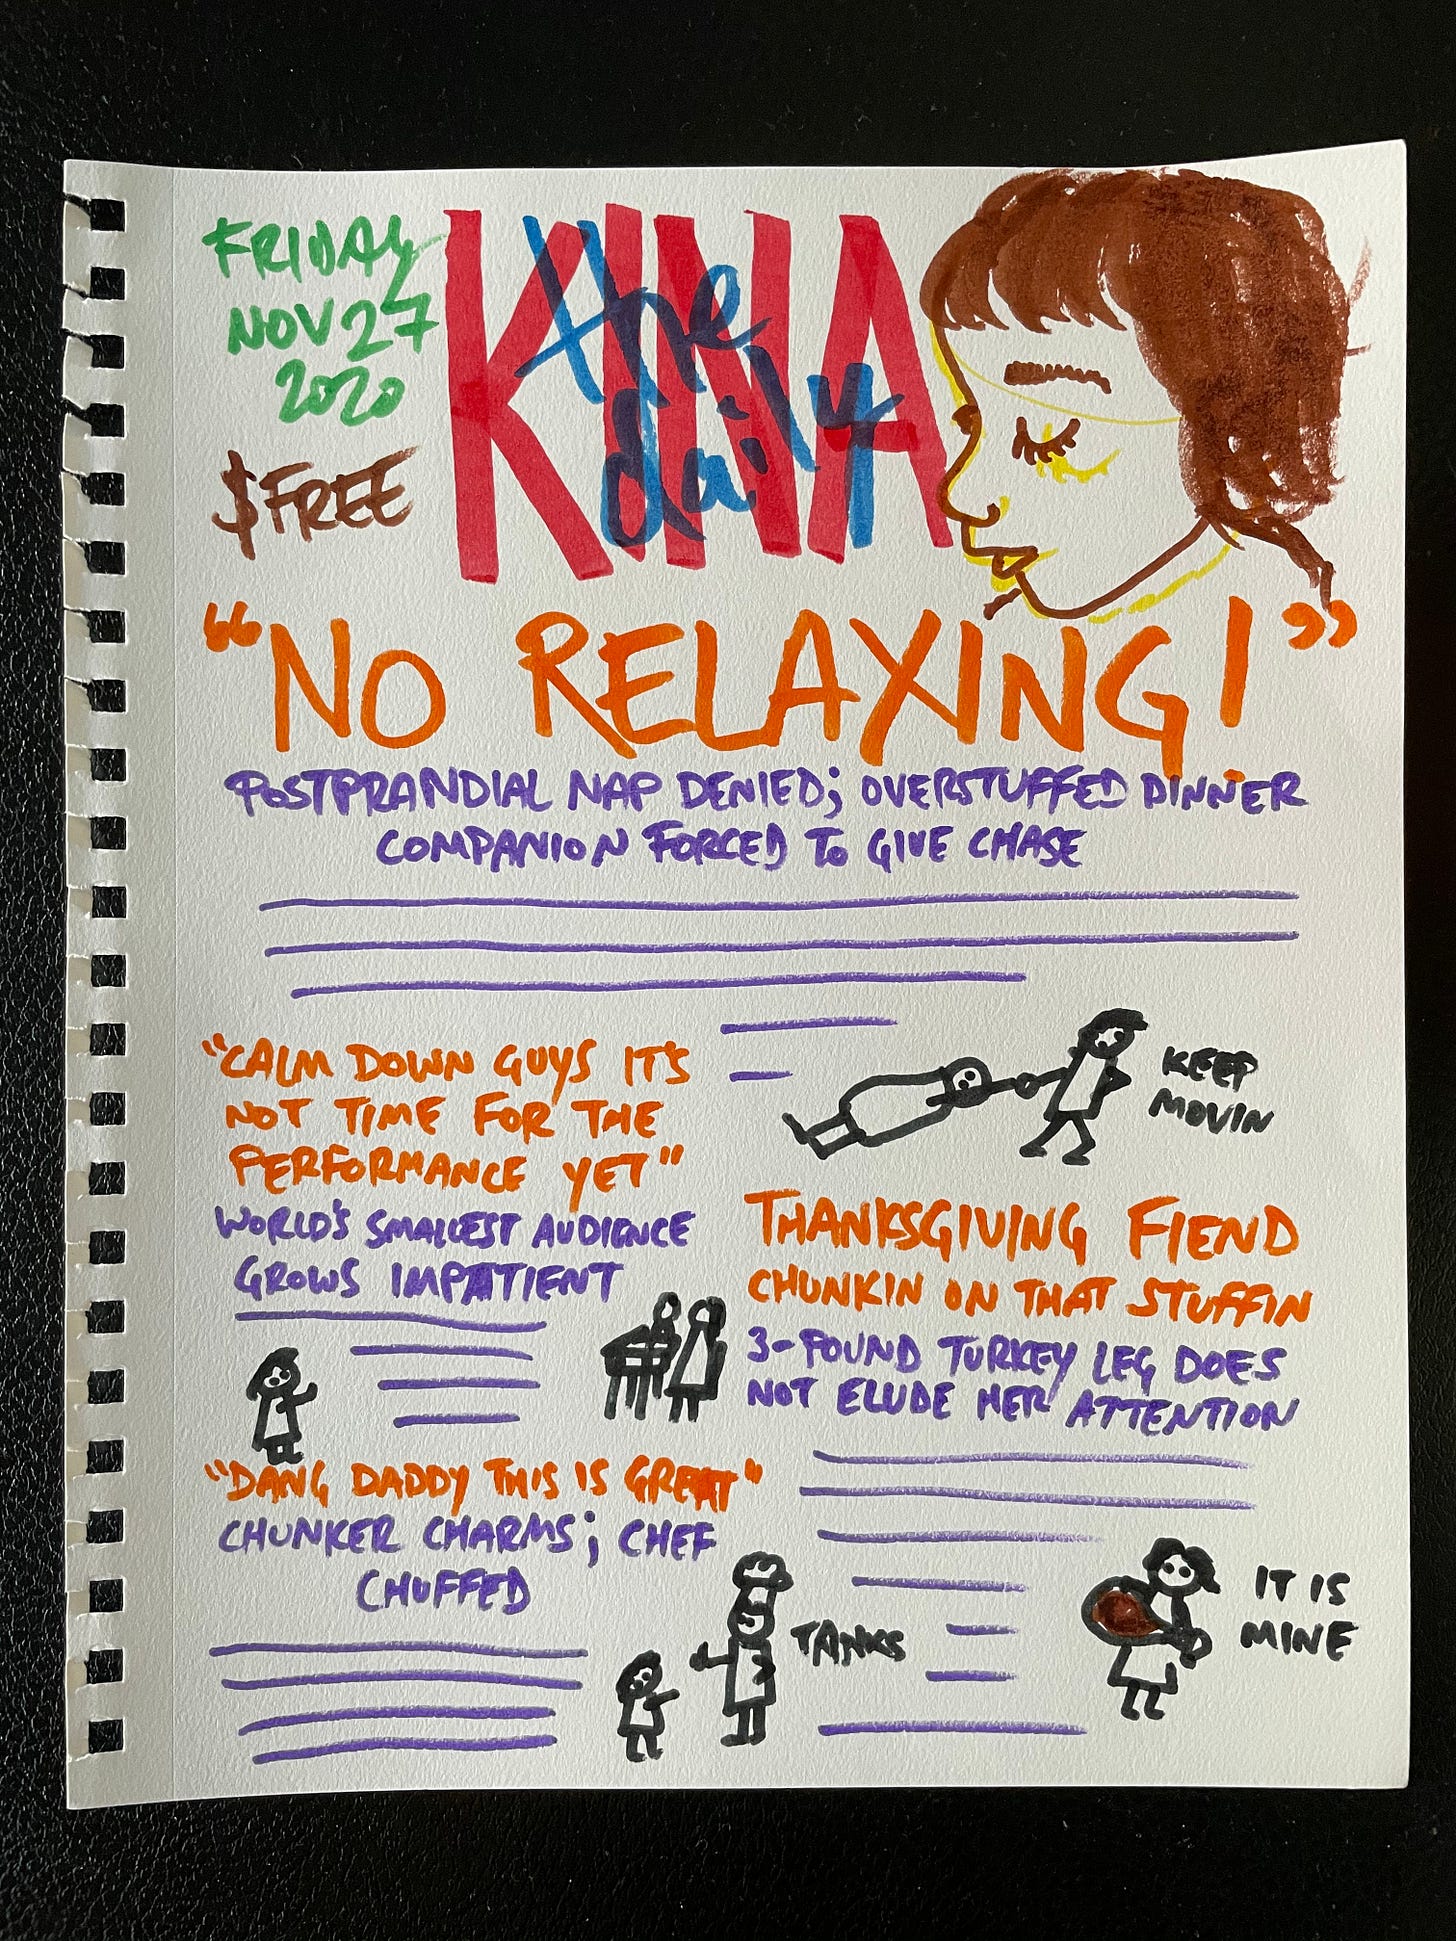 FRIDAY
NOV 27
2020
$FREE
KINA
the
daily
"NO RELAXING!"
POSTPRANDIAL NAP DENIED; OVERSTUFFED DINNER
COMPANION FORCED TO GIVE CHASE
KEEP
MOVIN
"CALM DOWN GUYS IT'S
NOT TIME FOR THE
PERFORMANCE YET"
WORLD'S SMALLEST AUDIENCE
GROWS IMPATIENT
THANKSGIVING FIEND
CHUNKIN ON THAT STUFFIN
3-POUND TURKEY LEG DOES
NOT ELUDE HER ATTENTION
"DANG DADDY THIS IS GREAT"
CHUNKER CHARMS; CHEF
CHUFFED
TANKS
IT IS
MINE